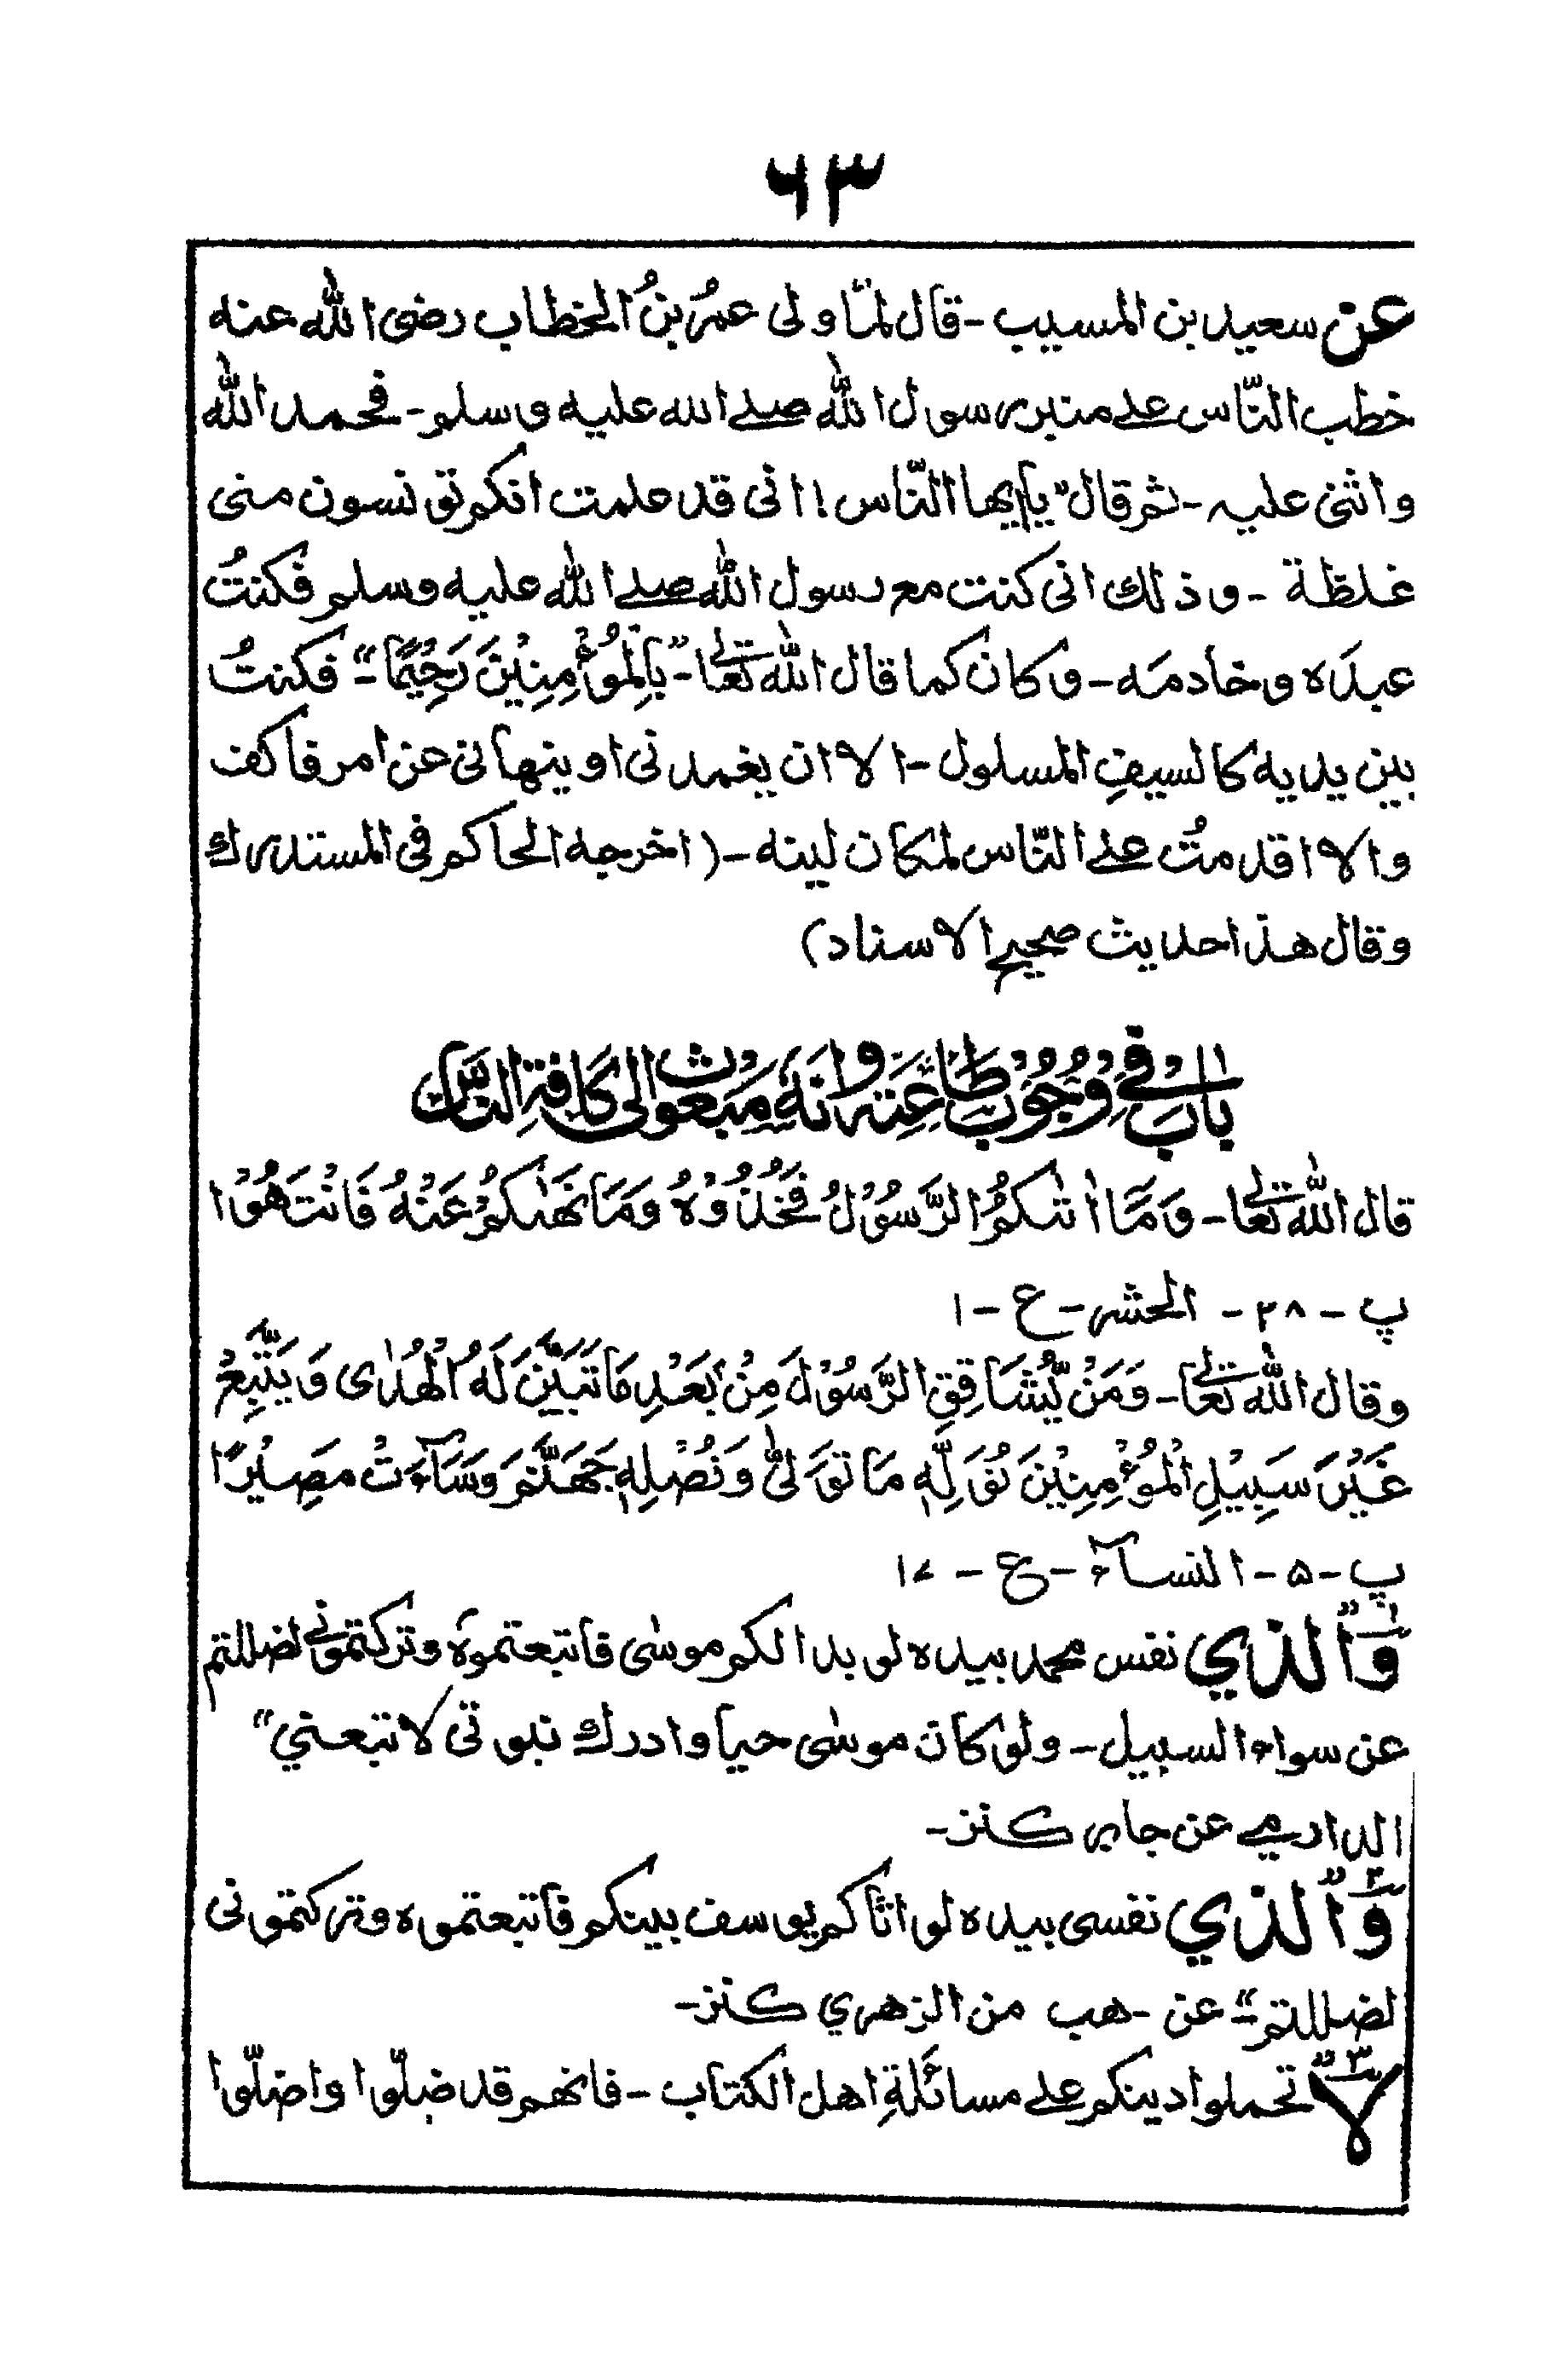 ٦٣
عن سعيد بن المسيب - قال لمّا ولى عمرُ بنُ الخطاب رضى الله عنه
خطب النّاس على منبر رسول الله صلى الله عليه وسلم - فحمد الله
واثنى عليه - ثم قال "يايها النّاس! انى قد علمت انكم تونسون منى
غلظة - وذلك انى كنت مع رسول الله صلى الله عليه وسلم فكنتُ
عبدَه وخادمَه - وكان كما قال الله تعالى - "بِالْمُؤْمِنِيْنَ رَحِيْمًا" - فكنتُ
بين يديه كالسيفِ المسلول - الا ان يغمدنى او ينهانى عن امر فاكف
والا اقدمتُ على النّاس لمكان لينه - (اخرجه الحاكم فى المستدرك
وقال هذا حديث صحيح الاسناد)
بابٌ فِي وُجُوْبِ طَاعَتِهِ وَاَنَّهٗ مَبْعُوْثٌ اِلٰى كَافَّةِ النَّاسِ
قال الله تعالى - وَمَآ اٰتٰىكُمُ الرَّسُوْلُ فَخُذُوْهُ وَمَا نَهٰىكُمْ عَنْهُ فَانْتَهُوْا
پ - ٢٨ - الحشر - ع - ١
وقال الله تعالى - وَمَنْ يُّشَاقِقِ الرَّسُوْلَ مِنْۢ بَعْدِ مَا تَبَيَّنَ لَهُ الْهُدٰى وَيَتَّبِعْ
غَيْرَ سَبِيْلِ الْمُؤْمِنِيْنَ نُوَلِّهٖ مَا تَوَلّٰى وَنُصْلِهٖ جَهَنَّمَ وَسَآءَتْ مَصِيْرًا
پ - ۵ - النسآء - ع - ١٧
١ "وَالذي نفس محمد بيده لو بدا لكم موسٰى فاتبعتموه وتركتمونى لضللتم
عن سواء السبيل - ولو كان موسٰى حيا وادرك نبوتى لاتبعني"
الدارمي عن جابر كنز -
٢ "وَالذي نفسى بيده لو اتاكم يوسف بينكم فاتبعتموه وتركتمونى
لضللتم" - عن - هب من الزهري كنز -
٣ "لا تحملوا دينكم على مسائَلةِ اهل الكتاب - فانهم قد ضلّوا واضلّوا